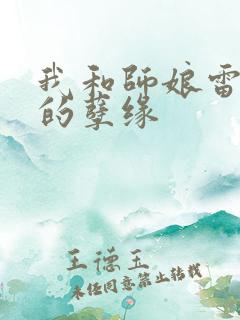 我和師娘雷
的孽缘
王德玉
未经同意禁止转载